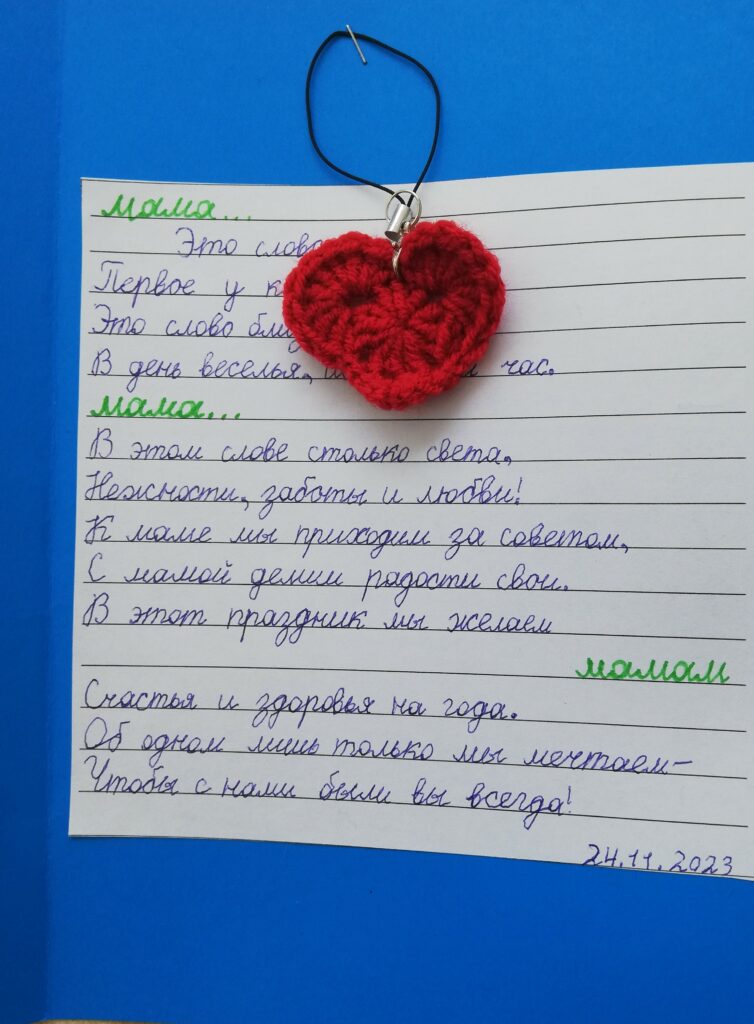 мама...
Это слово
Первое у
Это слово
В день веселья, час.
мама...
В этом слове столько света,
Нежности, заботы и любви!
К маме мы приходим за советом,
С мамой делим радости свои.
В этот праздник мы желаем
мамам
Счастья и здоровья на года.
Об одном лишь только мы мечтаем-
Чтобы с нами были вы всегда!
24.11.2023